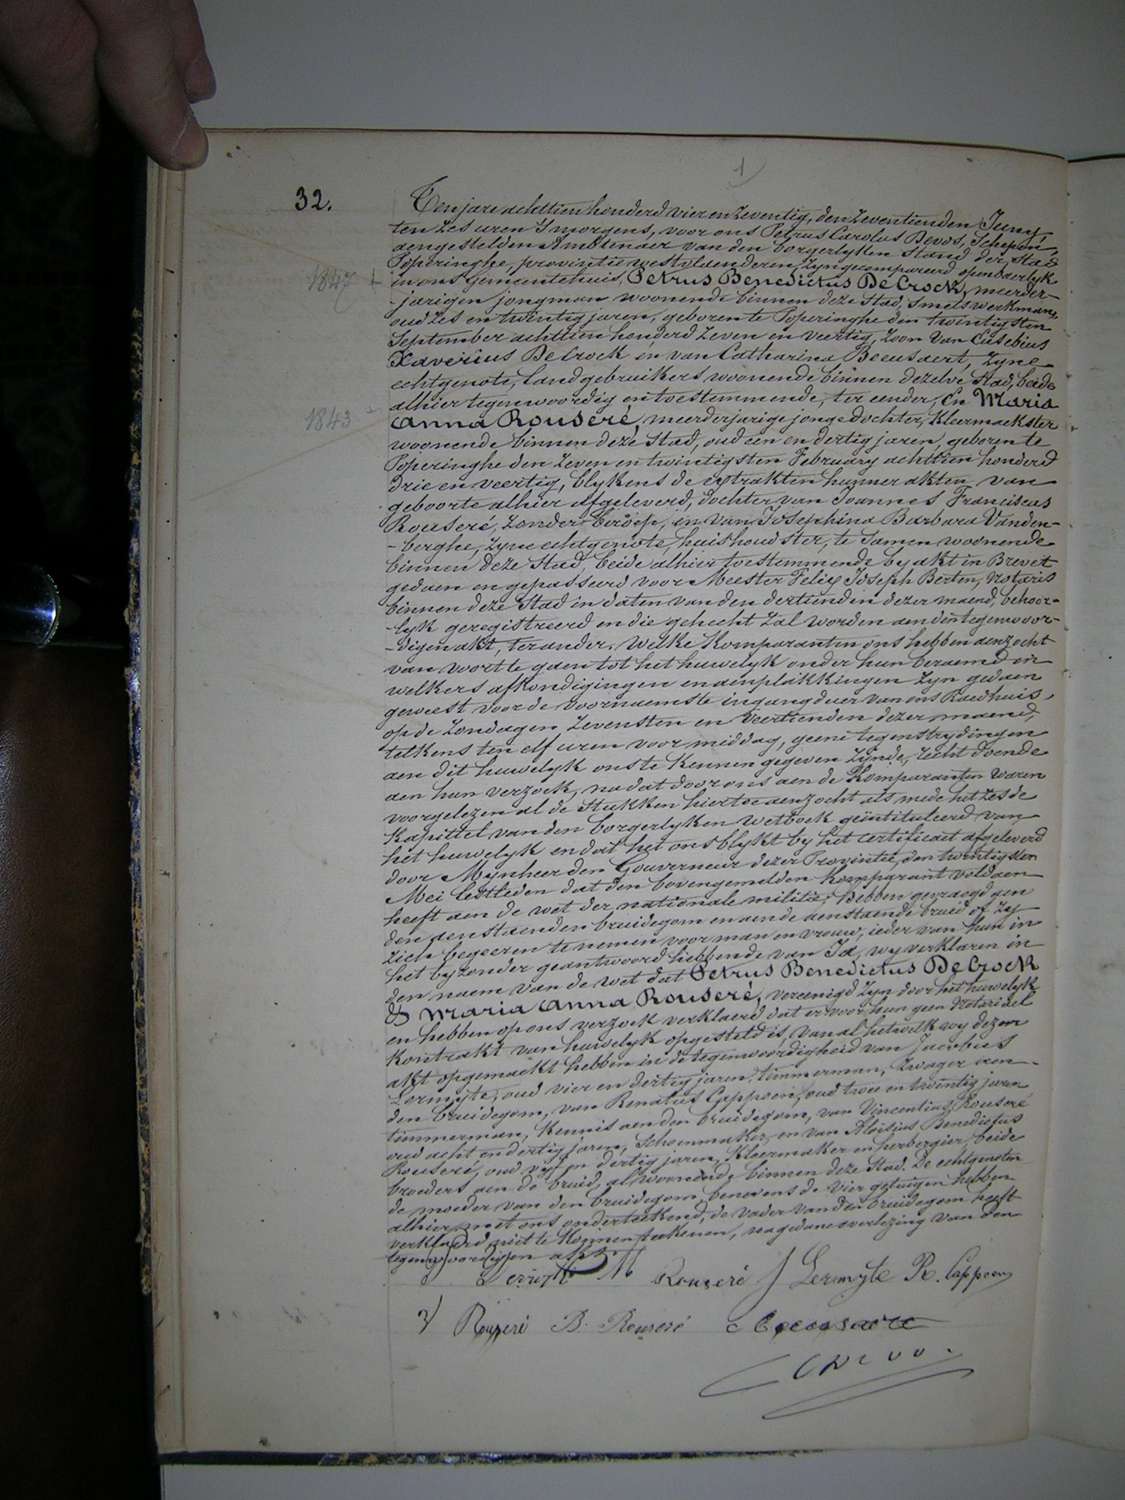 32.
Ten jare achttien honderd vier en zeventig, den zeventienden Juny,
ten zes uren 's morgens, voor ons Petrus Carolus Devos, Schepen,
aengestelden Ambtenaer van den borgerlyken Stand der Stad
Poperinghe, provintie westvlaenderen, zyn gecompareerd openbaerlyk
1847
in ons Gemeentehuis, Petrus Benedictus De Crock, meerder-
-jarigen jongman woonende binnen deze Stad, Smetswerkman,
oud zes en twintig jaren, geboren te Poperinghe den twintigsten
September achttien honderd zeven en veertig, Zoon van Eusebius
Xaverius De Crock en van Catharina Beeusaert, zyne
echtgenote, Landgebruikers woonende binnen dezelve Stad, beide
alhier tegenwoordig en toestemmende, ter eender, En Maria
1843
Anna Rouseré, meerderjarige jonge dochter, Kleermaekster
woonende binnen deze Stad, oud een en dertig jaren, geboren te
Poperinghe den zeven en twintigsten February achttien honderd
drie en veertig, blykens de extrakten hunner akten van
geboorte alhier afgeleverd, dochter van Joannes Franciscus
Rouseré, zonder beroep, en van Josephina Barbara Vanden-
-berghe, zyne echtgenote, huishoudster, te samen woonende
binnen deze Stad, beide alhier toestemmende by akt in Brevet
gedaen en gepasseerd voor Meester Felix Joseph Berten, Notaris
binnen deze Stad in daten van den dertienden dezer maend, behoor-
-lyk geregistreerd en die gehecht zal worden aen den tegenwoor-
-digen akt, ter ander. Welke Komparanten ons hebben aenzocht
van voort te gaen tot het huwelyk onder hun beraemd en
welkers afkondigingen en aenplakkingen zyn gedaen
geweest voor de voornaemste ingangdeur van ons Raedhuis,
op de Zondagen zevensten en veertienden dezer maend,
telkens ten elf uren voor middag, geene tegenstrydingen
aen dit huwelyk ons te kennen gegeven zynde, recht doende
aen hun verzoek, na dat door ons aen de Komparanten waren
voorgelezen al de Stukken hiertoe aenzocht als mede het zesde
Kapittel van den borgerlyken wetboek geïntituleerd van
het huwelyk en dat het ons blykt by het certificaet afgeleverd
door Mynheer den Gouverneur dezer Provintie, den twintigsten
Mei lestleden dat den bovengemelden Komparant voldaen
heeft aen de wet der nationale militie; Hebben gevraegd aen
den aenstaenden bruidegom en aen de aenstaende bruid of zy
zich begeeren te nemen voor man en vrouw, ieder van hun in
het byzonder geantwoord hebbende van Ja, wy verklaren in
den naem van de wet dat Petrus Benedictus De Crock
& Maria Anna Rouseré, vereenigd zyn door het huwelyk
en hebben op ons verzoek verklaerd dat er voor hun geen Notariael
Kontrakt van huwelyk opgesteld is, van al hetwelk wy dezen
akt opgemaekt hebben in de tegenwoordigheid van Jacobus
Lermyte, oud vier en dertig jaren, timmerman, Zwager aen
den bruidegom, van Renatus Cappoen, oud twee en twintig jaren
timmerman, Kennis aen den bruidegom, van Vincentius Rouseré
oud acht en dertig jaren, Schoenmaker, en van Aloisius Benedictus
Rouseré, oud vyf en dertig jaren, Kleermaker en herbergier, beide
broeders aen de bruid, al woonende binnen deze Stad. De echtgenoten
de moeder van den bruidegom, benevens de vier getuigen hebben
alhier met ons onderteekend, de vader van den bruidegom heeft
verklaerd niet te konnen teekenen, na gedane overlezing van den
tegenwoordigen akt.
M Rouseré J Lermyte R. Cappoen
V Rouseré B. Rouseré